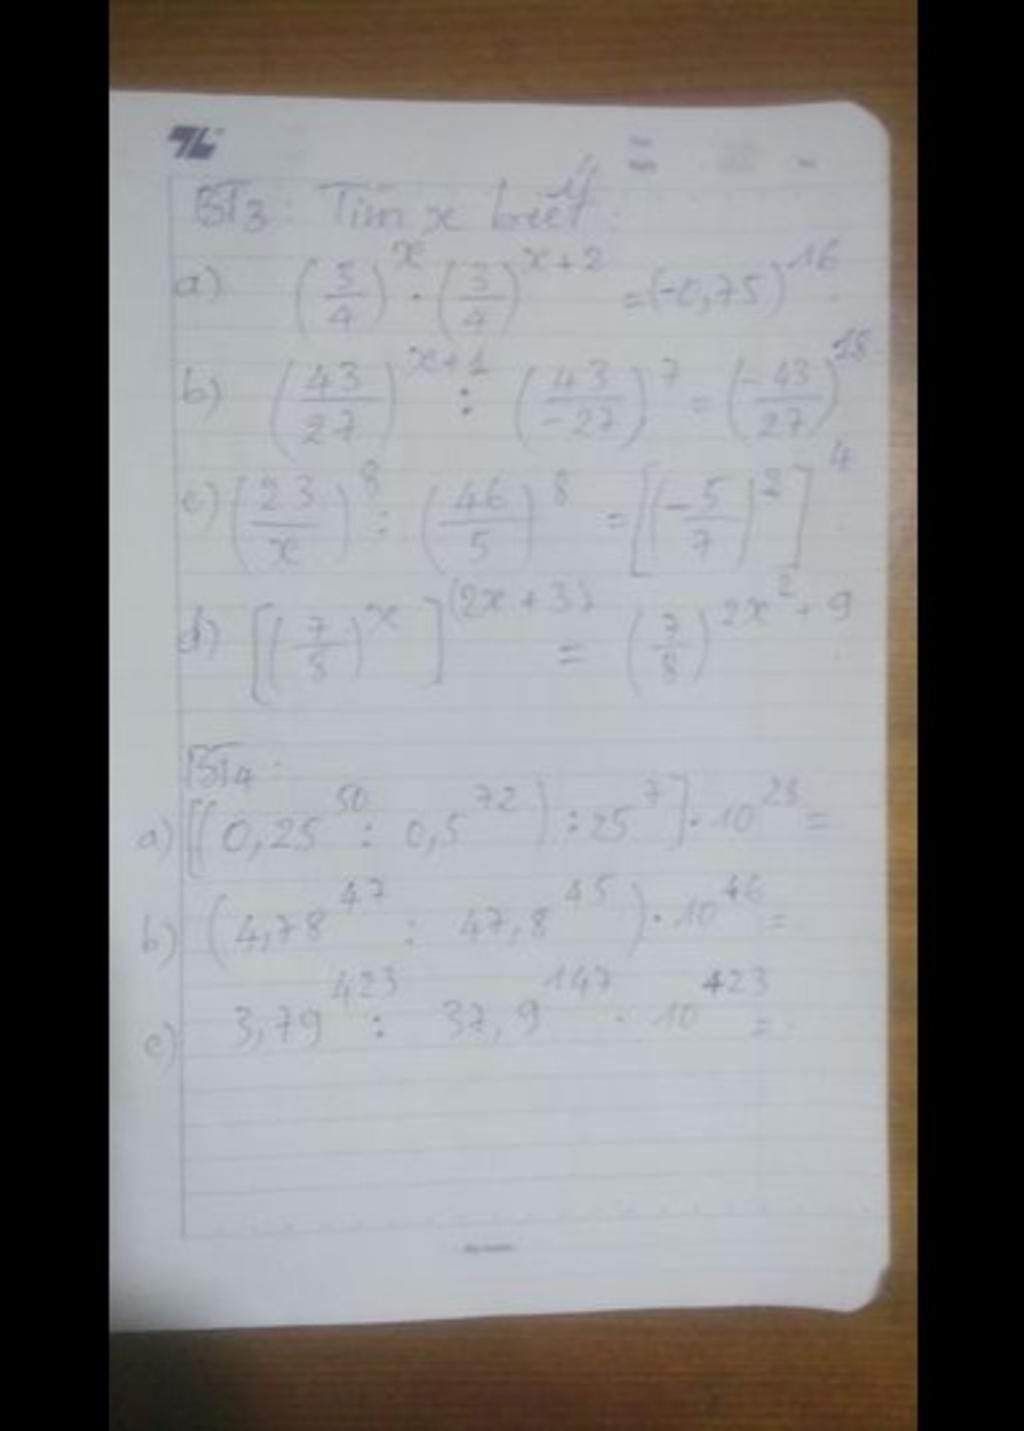 BT3: Tìm x biết:
a) (3/4)^x · (3/4)^(x+2) = (-0,75)^16
b) (43/27)^(x+1) : (43/-27)^7 = (-43/27)^18
c) (23/x)^8 : (46/5)^8 = [(-5/7)^2]^4
d) [(7/8)^x]^(2x+3) = (7/8)^(2x^2+9)
BT4:
a) [(0,25^50 : 0,5^72) : 25^7] · 10^23 =
b) (4,78^47 : 47,8^45) · 10^46 =
c) 3,79^423 : 37,9^147 · 10^423 =